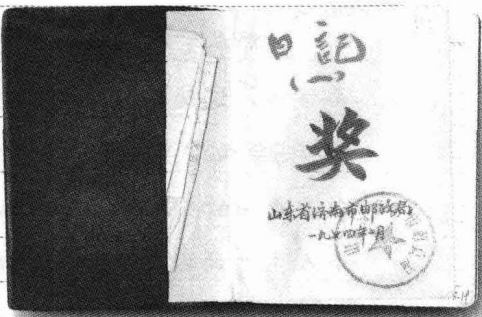 日記
(一)
奖
山东省济南市邮政局
一九七四年二月